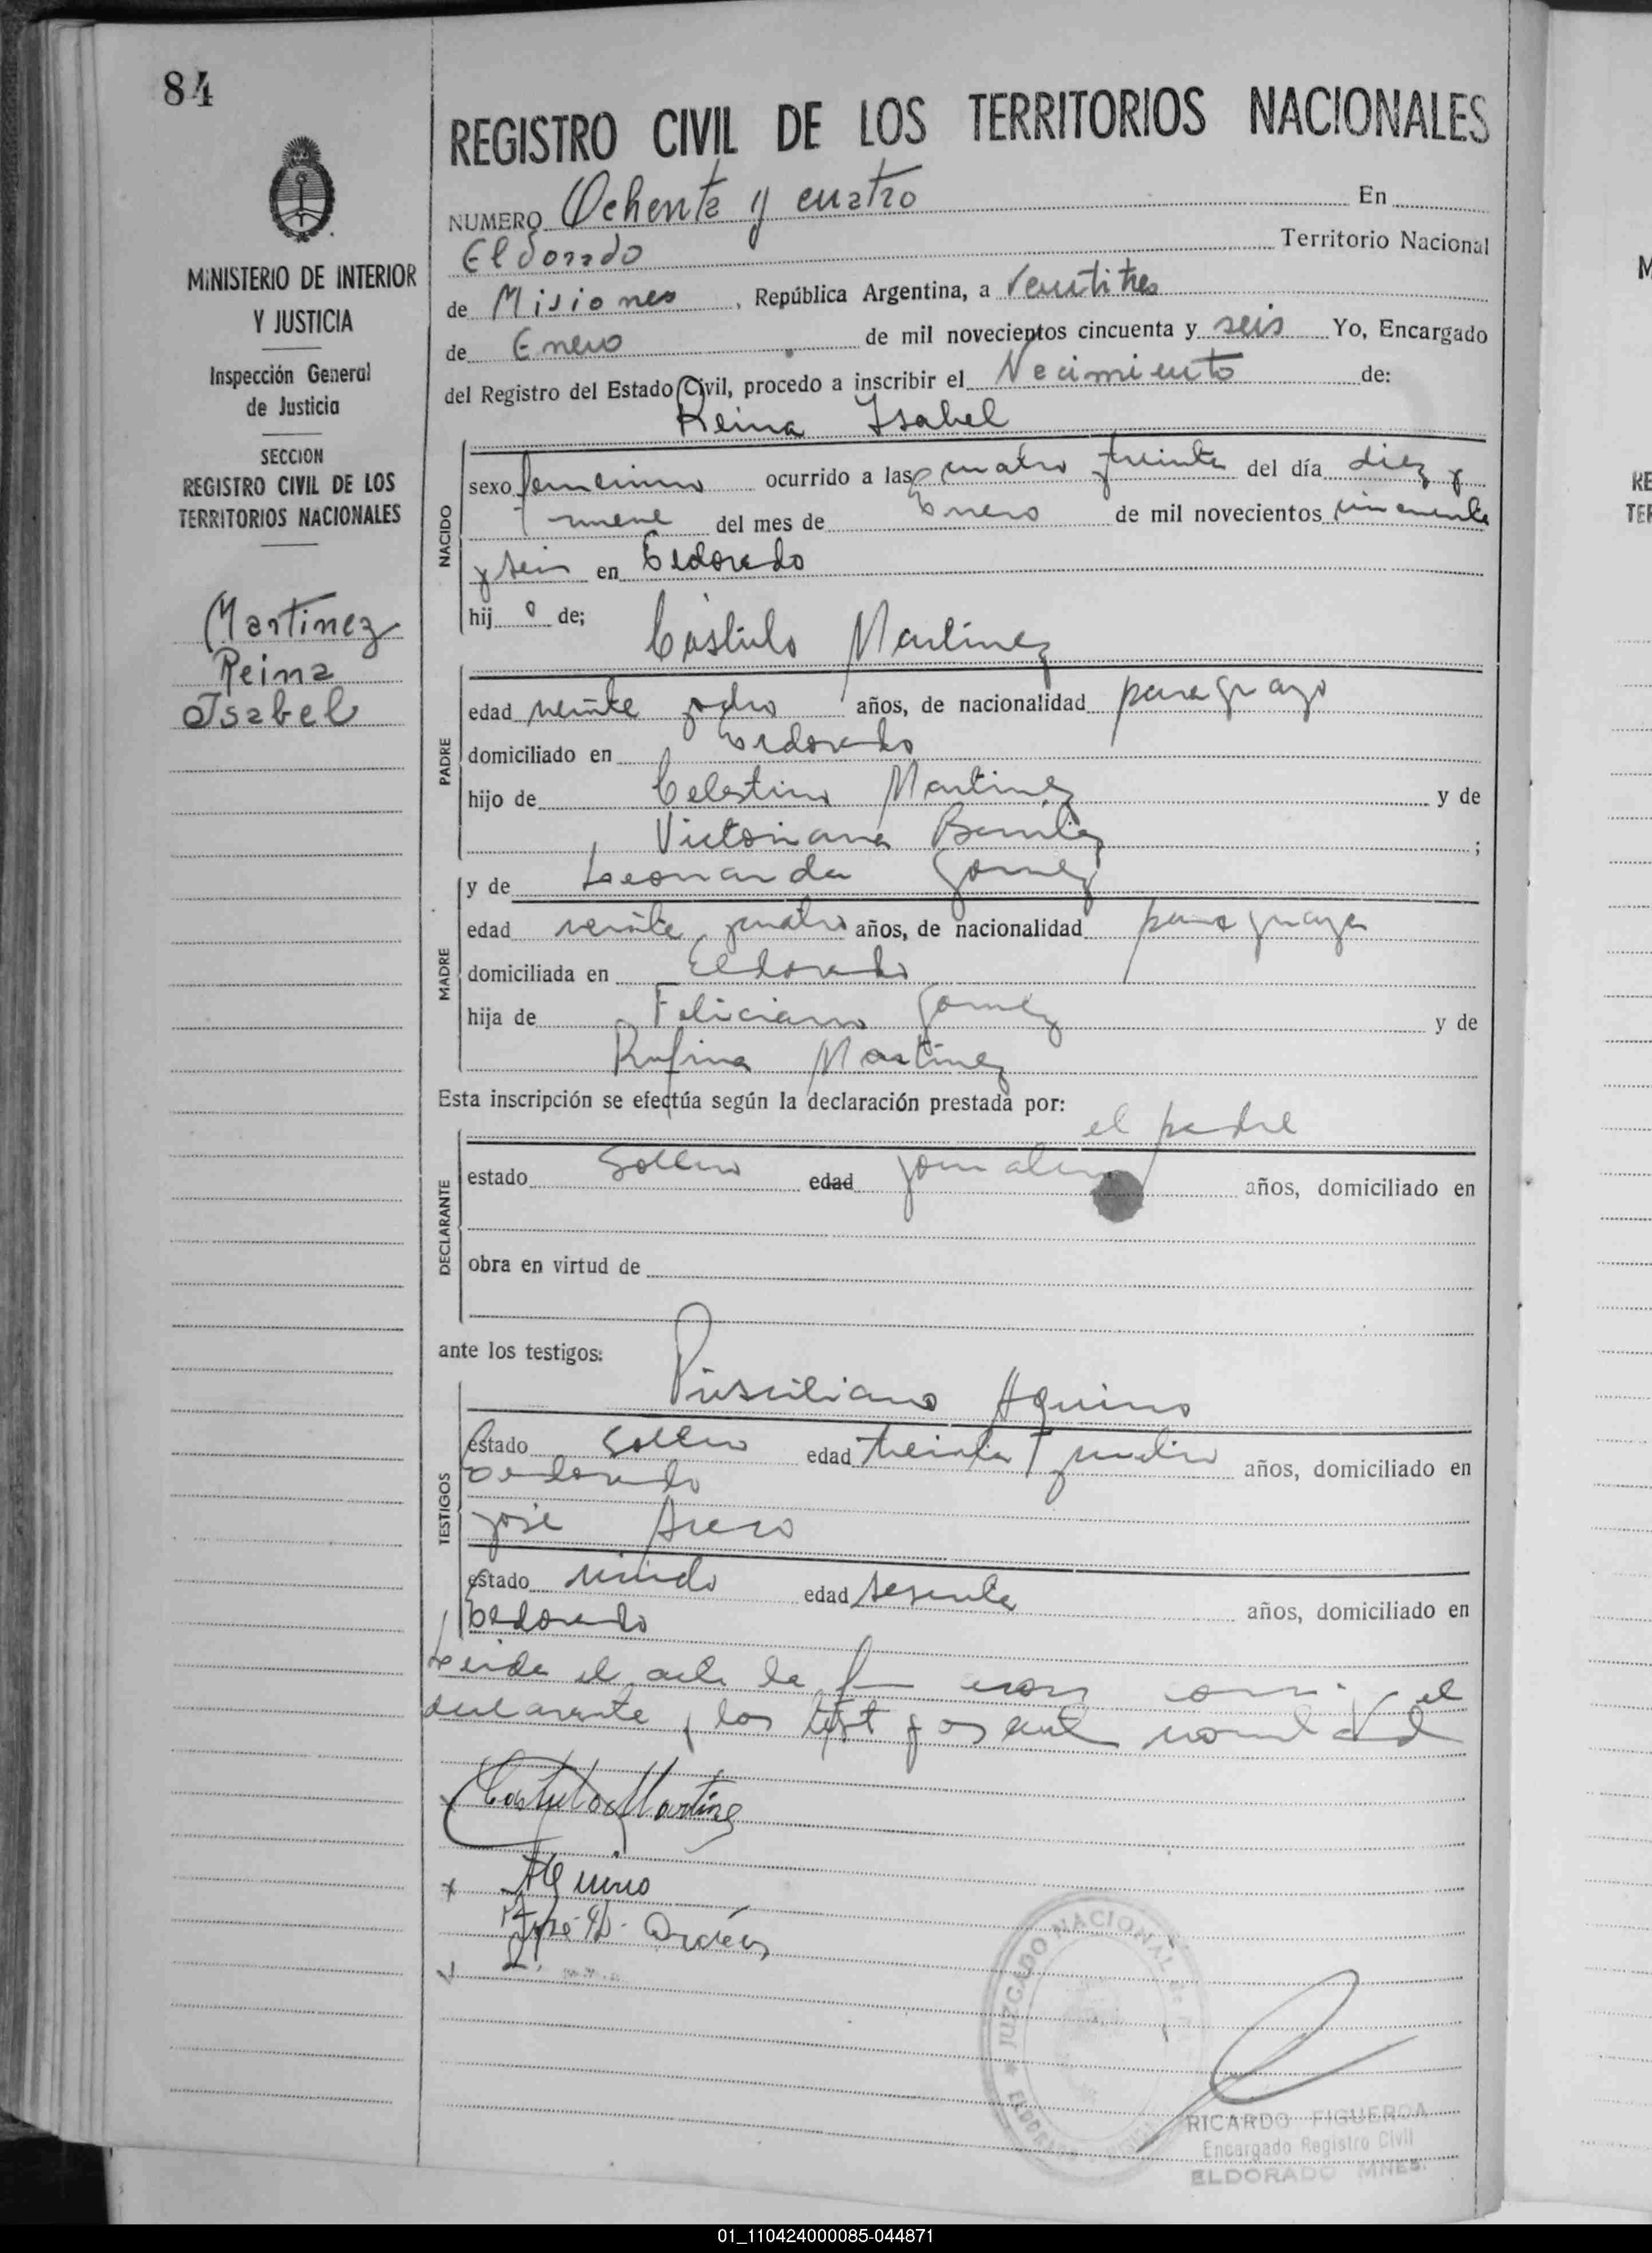 84
REGISTRO CIVIL DE LOS TERRITORIOS NACIONALES
NUMERO Ochenta y cuatro En
Eldorado Territorio Nacional
de Misiones, República Argentina, a Veintitres
de Enero de mil novecientos cincuenta y seis Yo, Encargado
del Registro del Estado Civil, procedo a inscribir el Nacimiento de:
Reina Isabel
MINISTERIO DE INTERIOR
Y JUSTICIA
Inspección General
de Justicia
SECCION
REGISTRO CIVIL DE LOS
TERRITORIOS NACIONALES
Martinez
Reina
Isabel
NACIDO
sexo femenino ocurrido a las cuatro treinta del día diez y
nueve del mes de Enero de mil novecientos cincuenta
y seis en Eldorado
hij de;
Cástulo Martinez
PADRE
edad veinte y ocho años, de nacionalidad paraguayo
domiciliado en Eldorado
hijo de Celestino Martinez y de
Victoriana Benitez ;
y de Leonarda Gomez
MADRE
edad veinte y cuatro años, de nacionalidad paraguaya
domiciliada en Eldorado
hija de Feliciano Gomez y de
Rufina Martinez
Esta inscripción se efectúa según la declaración prestada por:
el padre
DECLARANTE
estado soltero edad jornalero años, domiciliado en
obra en virtud de
ante los testigos:
Prisciliano Aquino
TESTIGOS
estado soltero edad treinta y cuatro años, domiciliado en
Eldorado
José
estado viudo edad sesenta años, domiciliado en
Eldorado
Leida el acta la el
declarante y los testigos
Castulo Martinez
x Aquino
José
JUZGADO NACIONAL DE
ELDORADO
RICARDO FIGUEROA
Encargado Registro Civil
ELDORADO MNES.
01_110424000085-044871